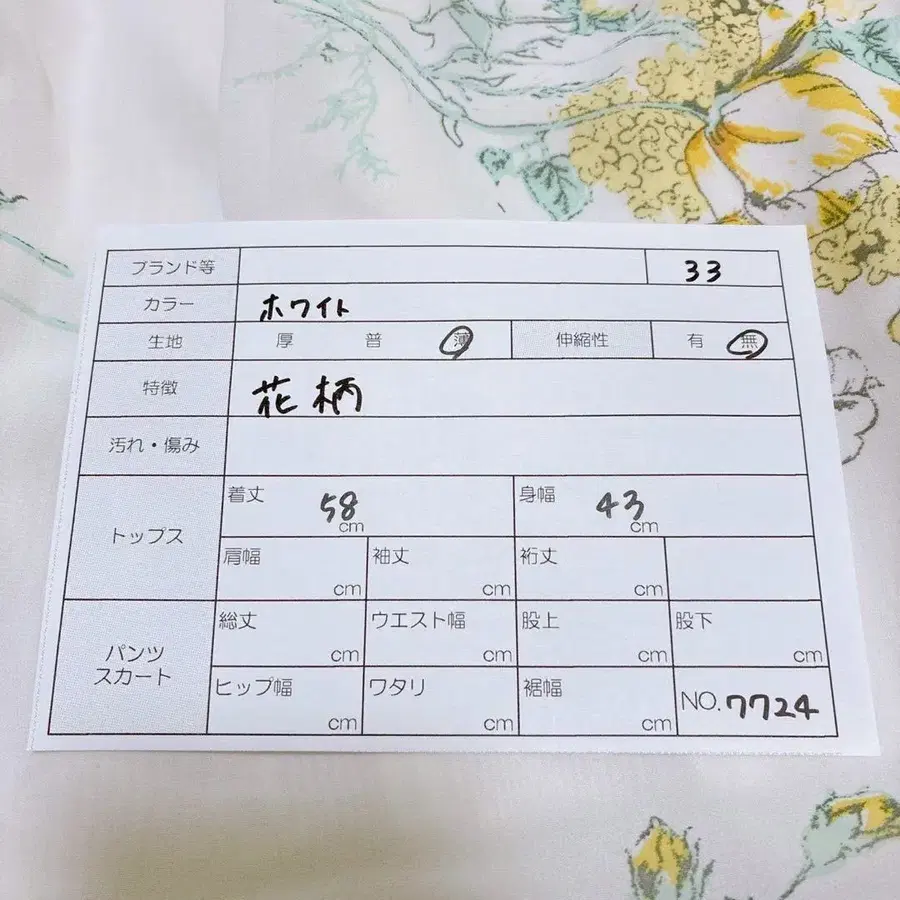 ブランド等 33
カラー ホワイト
生地 厚 普 薄 伸縮性 有 無
特徴 花柄
汚れ・傷み
トップス
着丈 58 cm 身幅 43 cm
肩幅 cm 袖丈 cm 裄丈 cm
パンツ
スカート
総丈 cm ウエスト幅 cm 股上 cm 股下 cm
ヒップ幅 cm ワタリ cm 裾幅 cm NO.7724